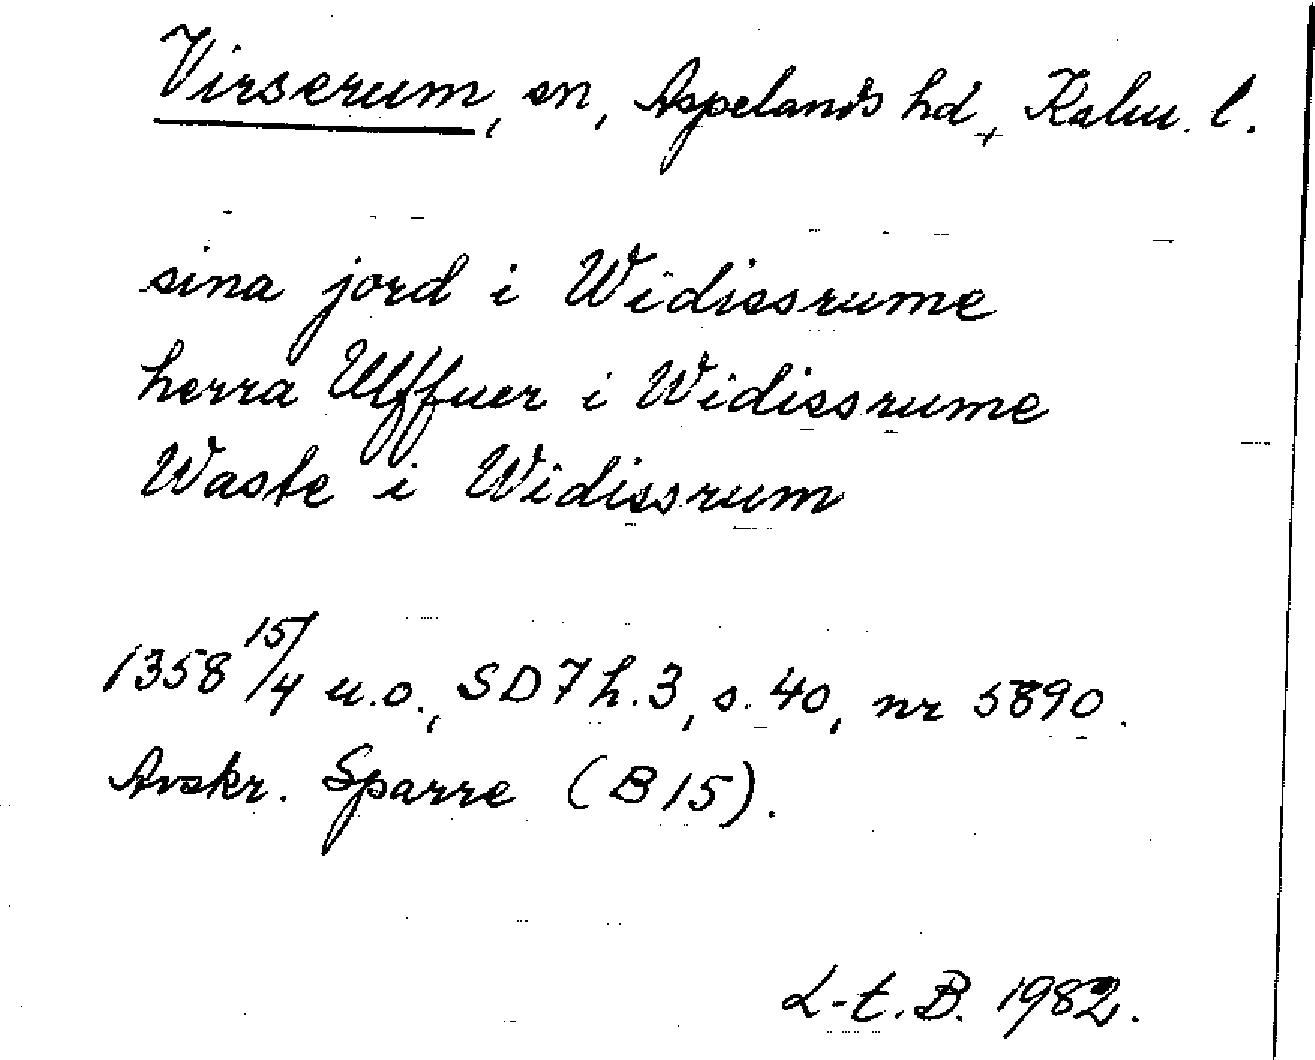 Virserum, sn, Aspelands hd, Kalm. l.
sina jord i Widissrume
herra Ulffuer i Widissrume
Waste i Widissrum
1358 15/4 u.o., SD 7 h. 3, s. 40, nr 5890.
Avskr. Sparre (B 15).
L-t. B. 1982.